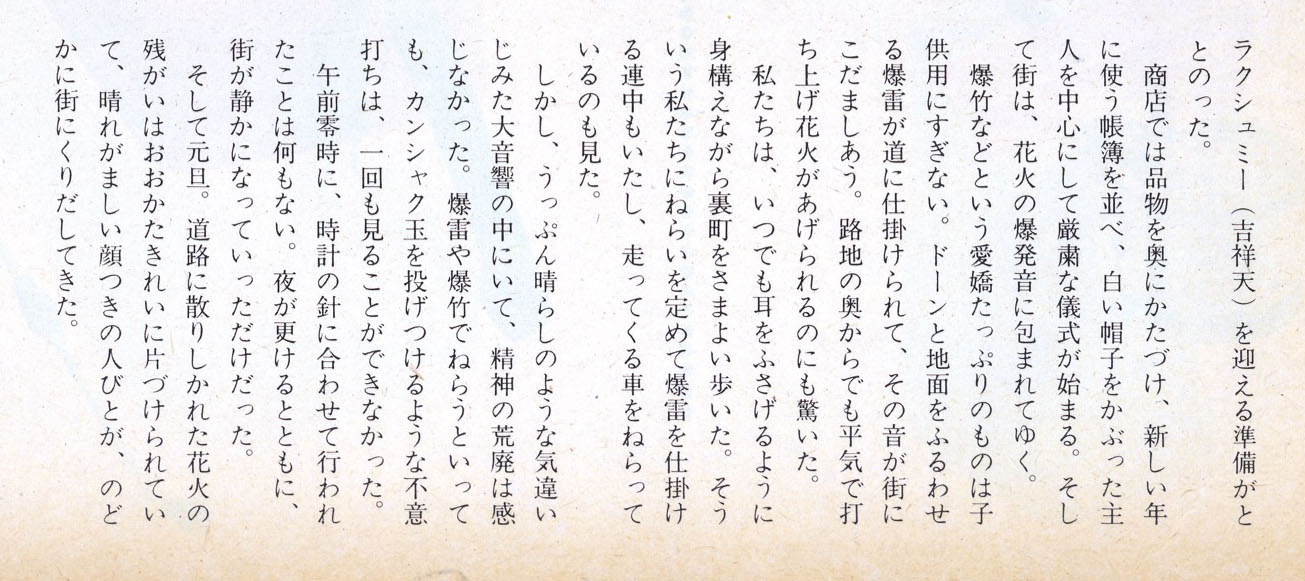 ラクシュミー（吉祥天）を迎える準備がと
とのった。
　商店では品物を奥にかたづけ、新しい年
に使う帳簿を並べ、白い帽子をかぶった主
人を中心にして厳粛な儀式が始まる。そし
て街は、花火の爆発音に包まれてゆく。
　爆竹などという愛嬌たっぷりのものは子
供用にすぎない。ドーンと地面をふるわせ
る爆雷が道に仕掛けられて、その音が街に
こだましあう。路地の奥からでも平気で打
ち上げ花火があげられるのにも驚いた。
　私たちは、いつでも耳をふさげるように
身構えながら裏町をさまよい歩いた。そう
いう私たちにねらいを定めて爆雷を仕掛け
る連中もいたし、走ってくる車をねらって
いるのも見た。
　しかし、うっぷん晴らしのような気違い
じみた大音響の中にいて、精神の荒廃は感
じなかった。爆雷や爆竹でねらうといって
も、カンシャク玉を投げつけるような不意
打ちは、一回も見ることができなかった。
　午前零時に、時計の針に合わせて行われ
たことは何もない。夜が更けるとともに、
街が静かになっていっただけだった。
　そして元旦。道路に散りしかれた花火の
残がいはおおかたきれいに片づけられてい
て、晴れがましい顔つきの人びとが、のど
かに街にくりだしてきた。